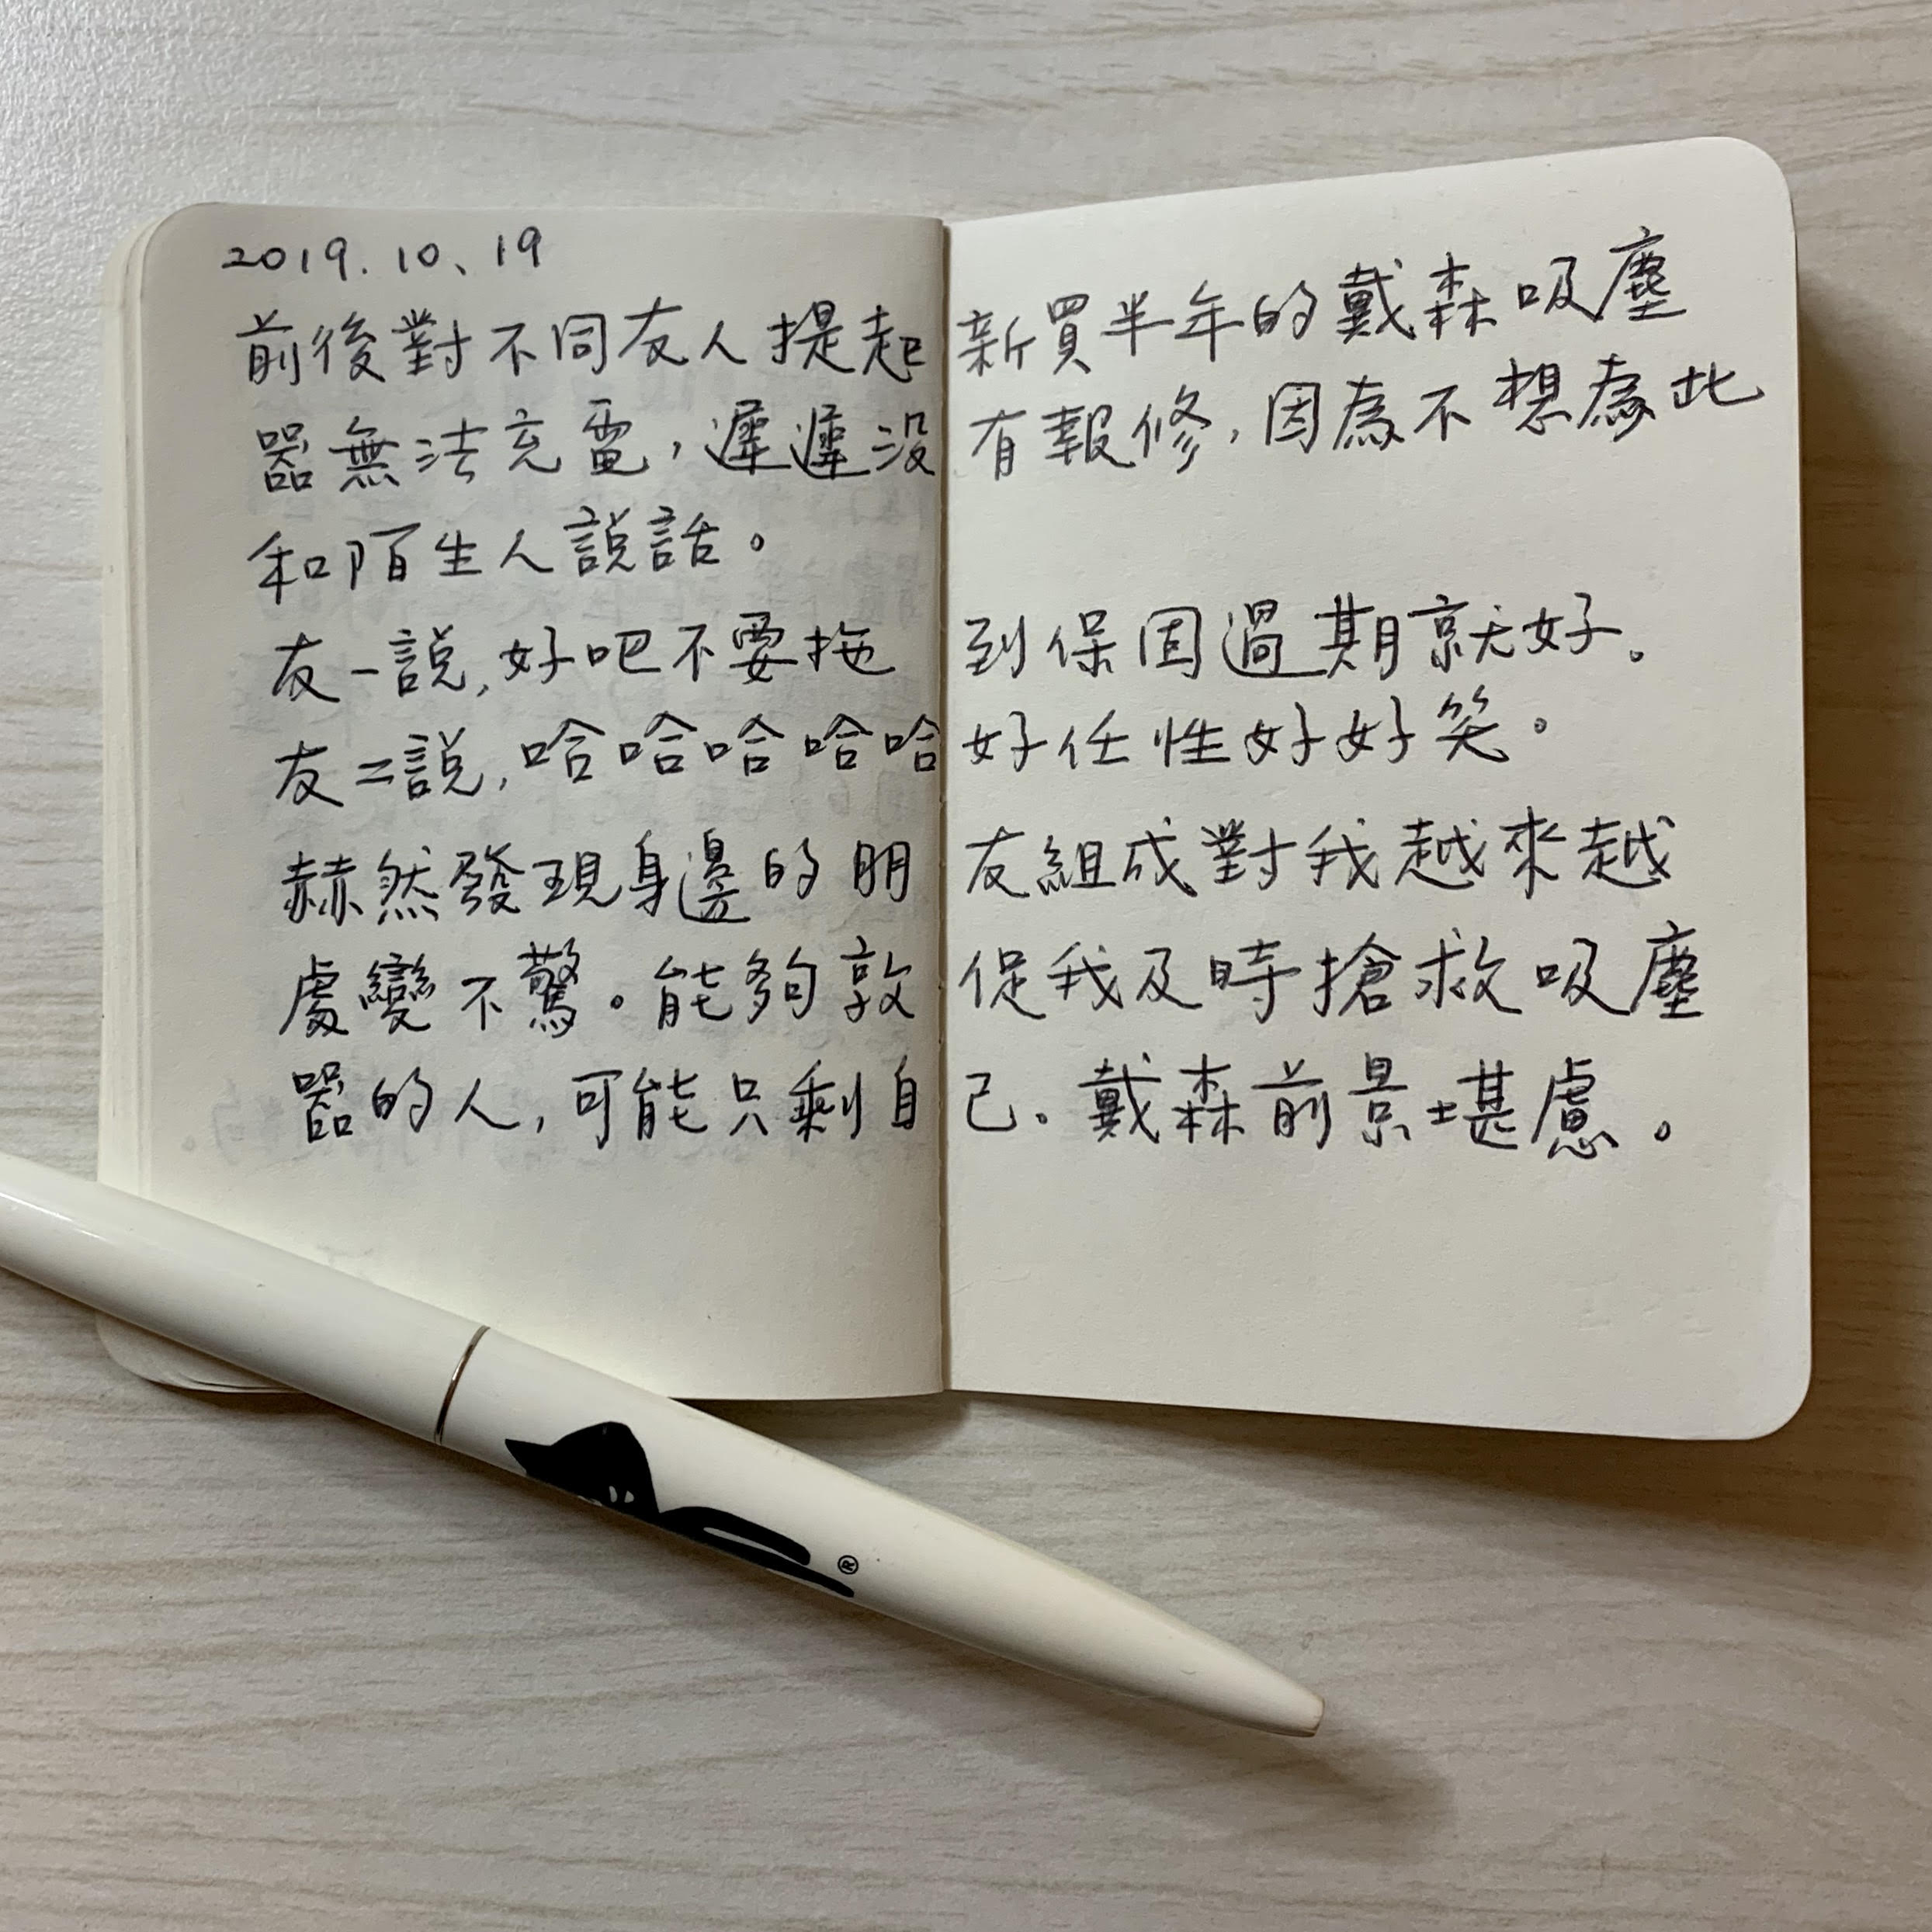 2019.10、19
前後對不同友人提起新買半年的戴森吸塵
器無法充電，遲遲沒有報修，因為不想為此
和陌生人說話。
友一說，好吧不要拖到保固過期就好。
友二說，哈哈哈哈哈好任性好好笑。
赫然發現身邊的朋友組成對我越來越
處變不驚。能夠敦促我及時搶救吸塵
器的人，可能只剩自己。戴森前景堪慮。
®